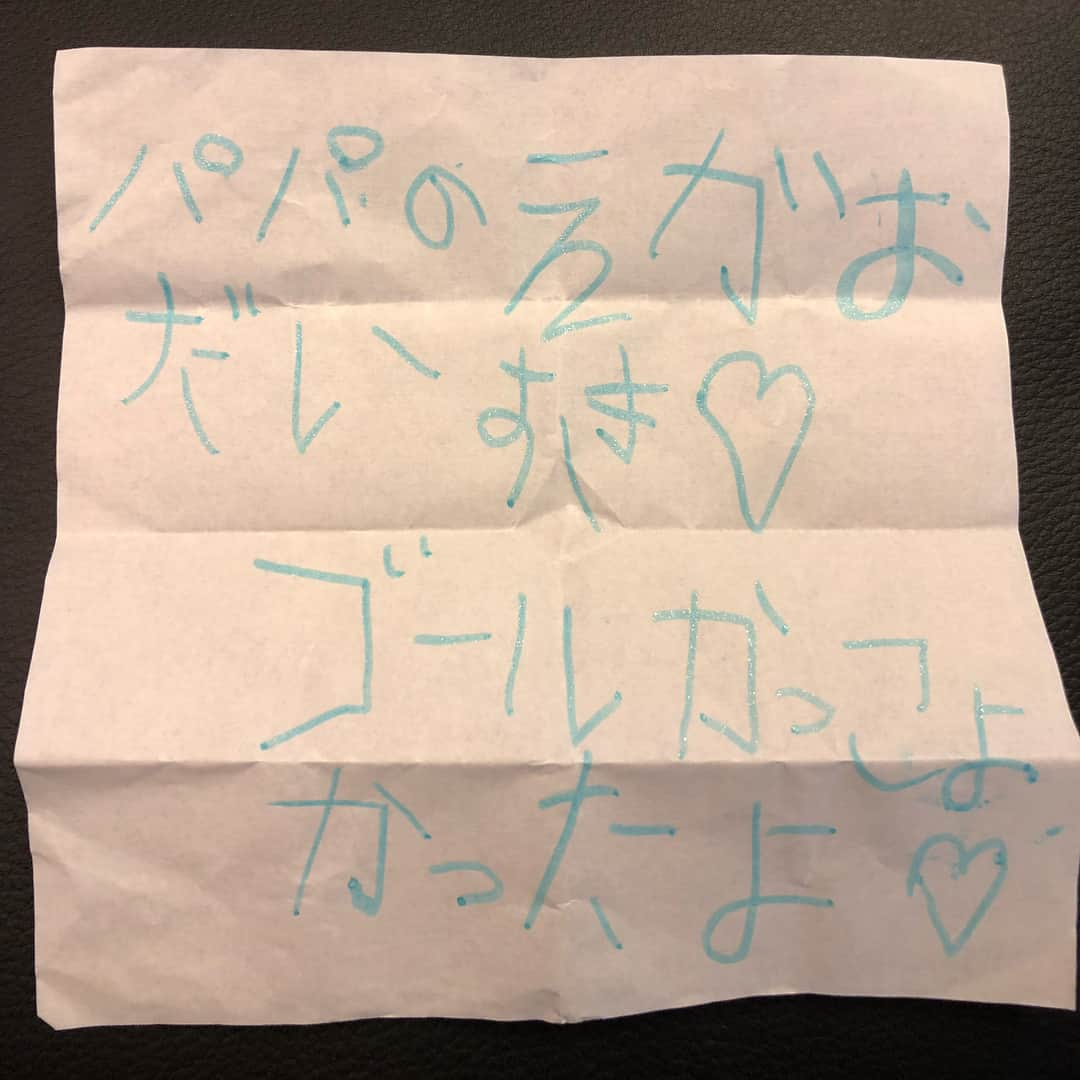 パパのえがお
だいすき♡
ゴールかっこよ
かったよ♡